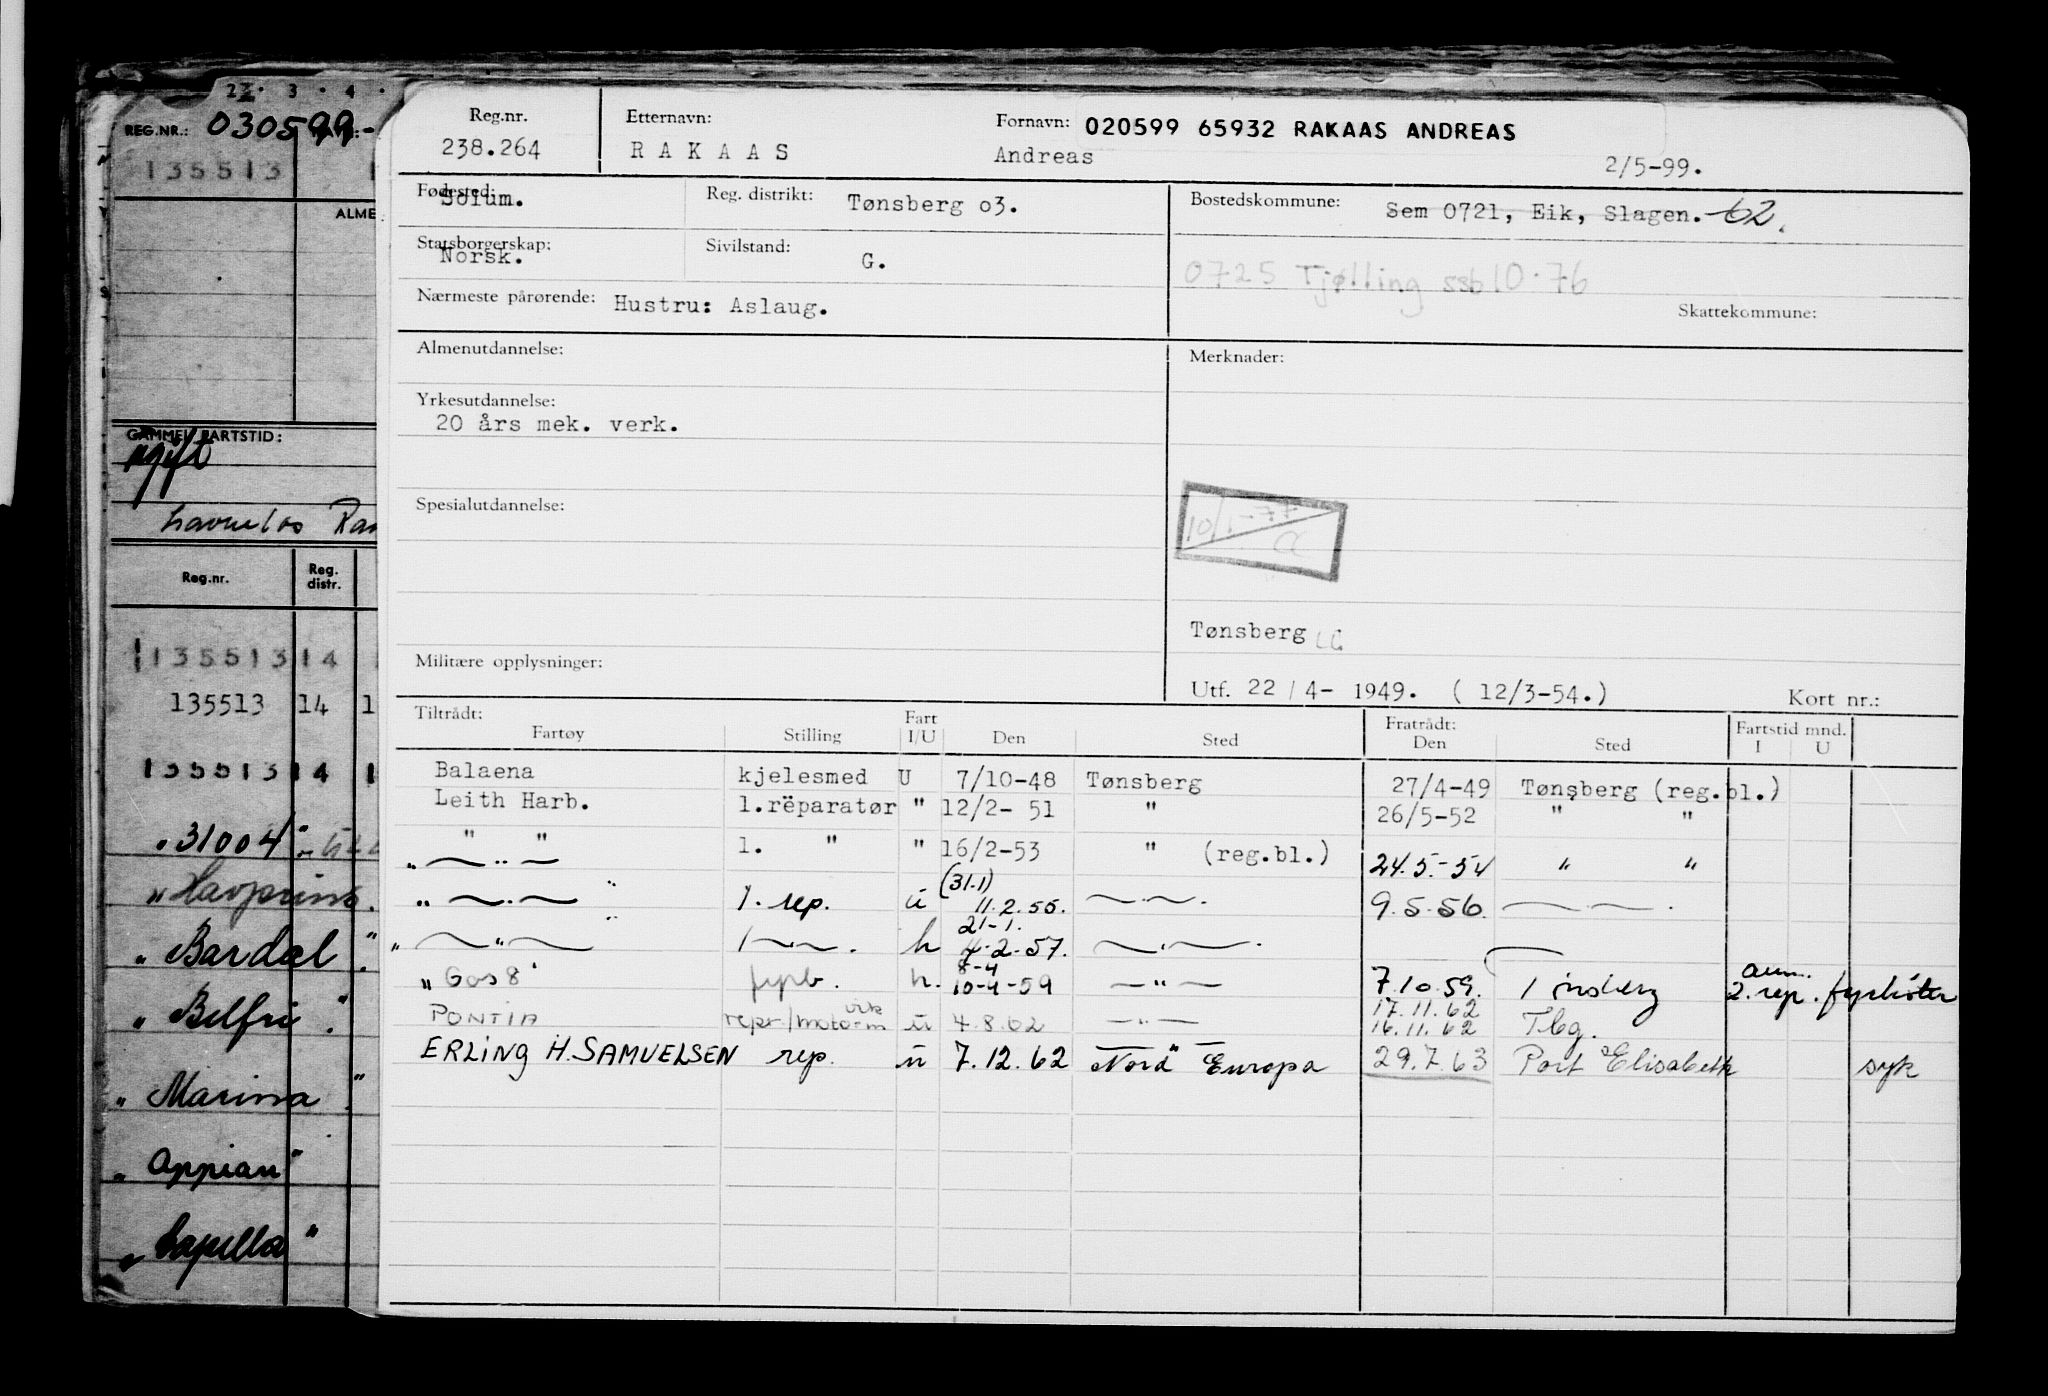 22 . 3 . 4 .
REG.NR.: 030599-
135513
ALME
GAMMEL FARTSTID:
ugift
Reg.nr. Reg. distr.
135513 14
135513 14 1
135513 14 1
"31004"
"Havprins".
"Bardal".
"Belfri".
"Marina"
"Appian"
"Capella"
Reg.nr. 238.264
Etternavn: RAKAAS
Fornavn: 020599 65932 RAKAAS ANDREAS
Andreas 2/5-99.
Fødested: Solum.
Reg. distrikt: Tønsberg o3.
Bostedskommune: Sem 0721, Eik, Slagen. 62.
Statsborgerskap: Norsk.
Sivilstand: G.
0725 Tjølling ssb 10.76
Nærmeste pårørende: Hustru: Aslaug.
Skattekommune:
Almenutdannelse:
Merknader:
Yrkesutdannelse:
20 års mek. verk.
Spesialutdannelse:
10/1-77
Tønsberg
Militære opplysninger:
Utf. 22 / 4- 1949. ( 12/3-54.) Kort nr.:
Tiltrådt: Fartøy Stilling Fart I/U Den Sted Fratrådt: Den Sted Fartstid mnd. I U
Balaena kjelesmed U 7/10-48 Tønsberg 27/4-49 Tønsberg (reg.bl.)
Leith Harb. 1.rëparatør " 12/2- 51 " 26/5-52 " "
" " 1. " " 16/2-53 " (reg.bl.) 24.5.-54 " "
" — " — 1. rep. u (31.1) 11.2.55. — " — . 9.5.56. — " — .
" — " — 1 — " — . h 21-1. 4.2-57. — " — .
"Gos 8" fyrb. h. 8-4 10-4-59 — " — 7.10.59. Tønsberg 2. rep. fyrbøter
PONTIA repr/motorm vik u 4.8.62 — " — 17.11.62 16.11.62 Tbg.
ERLING H. SAMUELSEN rep. u 7.12.62 Nord Europa 29.7.63 Port Elisabeth syk